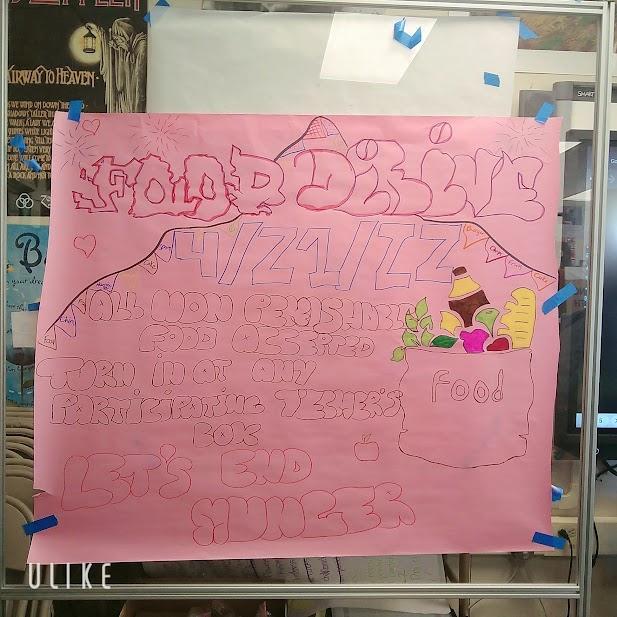 AIRWAY TO HEAVEN
FOOD DRIVE
4/21/22
ALL NON PERISHABLE
FOOD ACCEPTED
TURN IN AT ANY
PARTICIPATING TECHER'S
BOX
Food
LET'S END
HUNGER
SMART
ULIKE